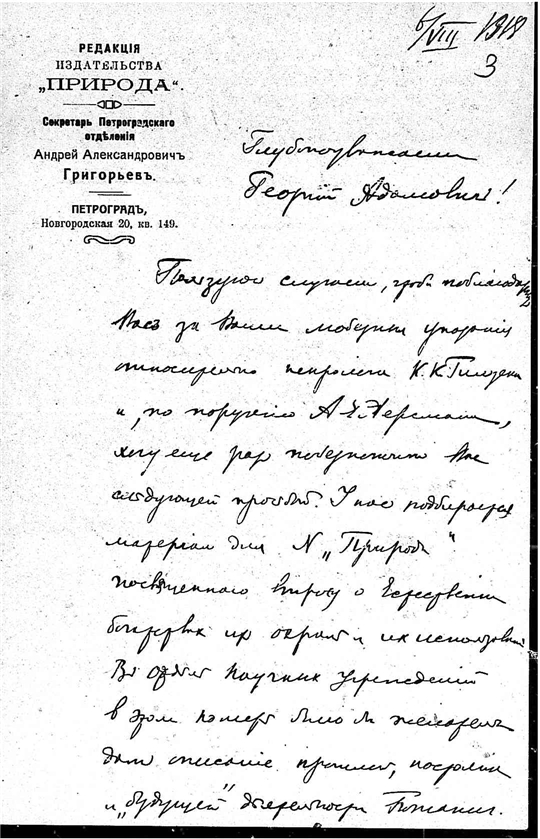 6/VIII 1918
3
РЕДАКЦІЯ
ИЗДАТЕЛЬСТВА
„ПРИРОДА“.
Секретарь Петроградскаго
отдѣленія
Андрей Александровичъ
Григорьевъ.
ПЕТРОГРАДЪ,
Новгородская 20, кв. 149.
Глубокоуважаемый
Георгій Адамовичъ!
Пользуюсь случаем, чтобы поблагодарить
Васъ за Ваши указанія
относительно некролога К. К. Гильзена
и, по порученію А. Е. Ферсмана,
хочу еще раз побезпокоить Вас
следующей просьбой. У нас подбирается
матеріал для N „Природы“
посвященного вопросу о Естественных
богатствах их охране и их использованіи
В отделе Научных учрежденій
в этом номере было бы желательно
дать описаніе прошлой, настоящей
и „будущей“ деятельности